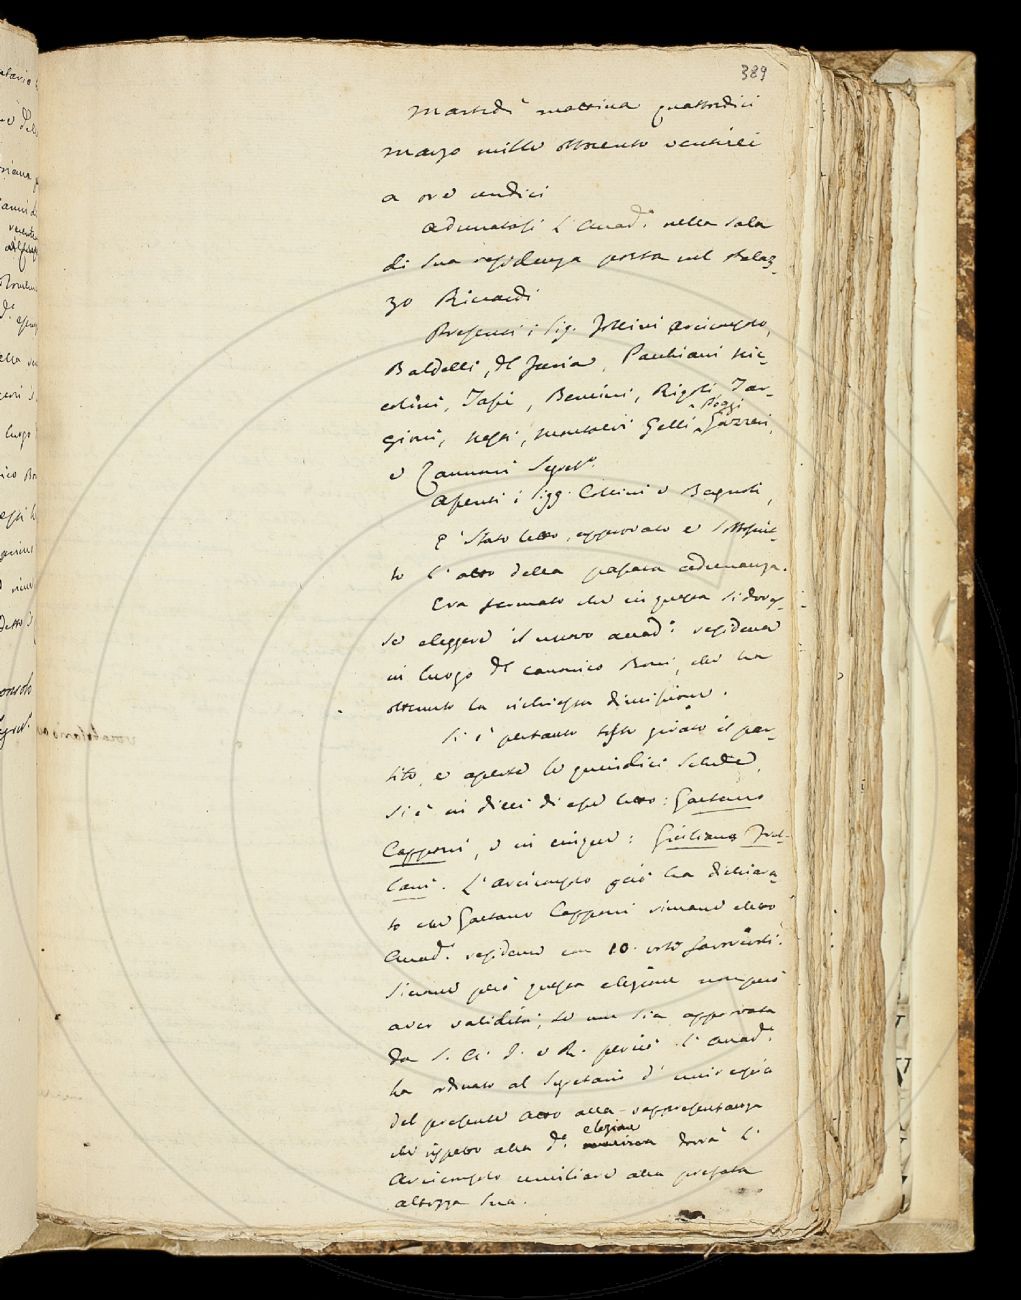 389
Martedì mattina quattordici
marzo mille ottocento ventisei
a ore undici
Adunatasi l'Accad.ª nella sala
di sua residenza posta nel Palaz-
zo Riccardi
Presenti i Sig. Follini Arciconsolo,
Baldelli, Del Furia, Pacchiani, Nic-
colini, Tassi, Bencini, Rigoli, Tar-
gioni, Nesti, Montalvi, Gelli, Poggi Gazzeri,
e Zannoni Segret.º
Assenti i Sigg. Collini e Bagnoli,
È stato letto, approvato e sottoscrit-
to l'atto della passata adunanza.
Era fermato che in questa si doves-
se eleggere il nuovo accad.º residente
in luogo del canonico Boni, che ha
ottenuto la richiesta dimissione.
Si è pertanto tosto girato il par-
tito, e aperte le quindici schede,
si è in dieci di esse letto: Gaetano
Capponi, e in cinque: Giuliano Frul-
lani. L'Arciconsolo perciò ha dichiara-
to che Gaetano Capponi rimane eletto
Accad.º residente con 10. voti favorevoli.
Siccome però questa elezione non può
aver validità, se non sia approvata
da S. A. I. e R. perciò l'Accad.ª
ha ordinato al Segretario d'unir copia
del presente atto alla rappresentanza
che rispetto alla d.ª elezione dovrà l'
Arciconsolo umiliare alla prefata
altezza sua.